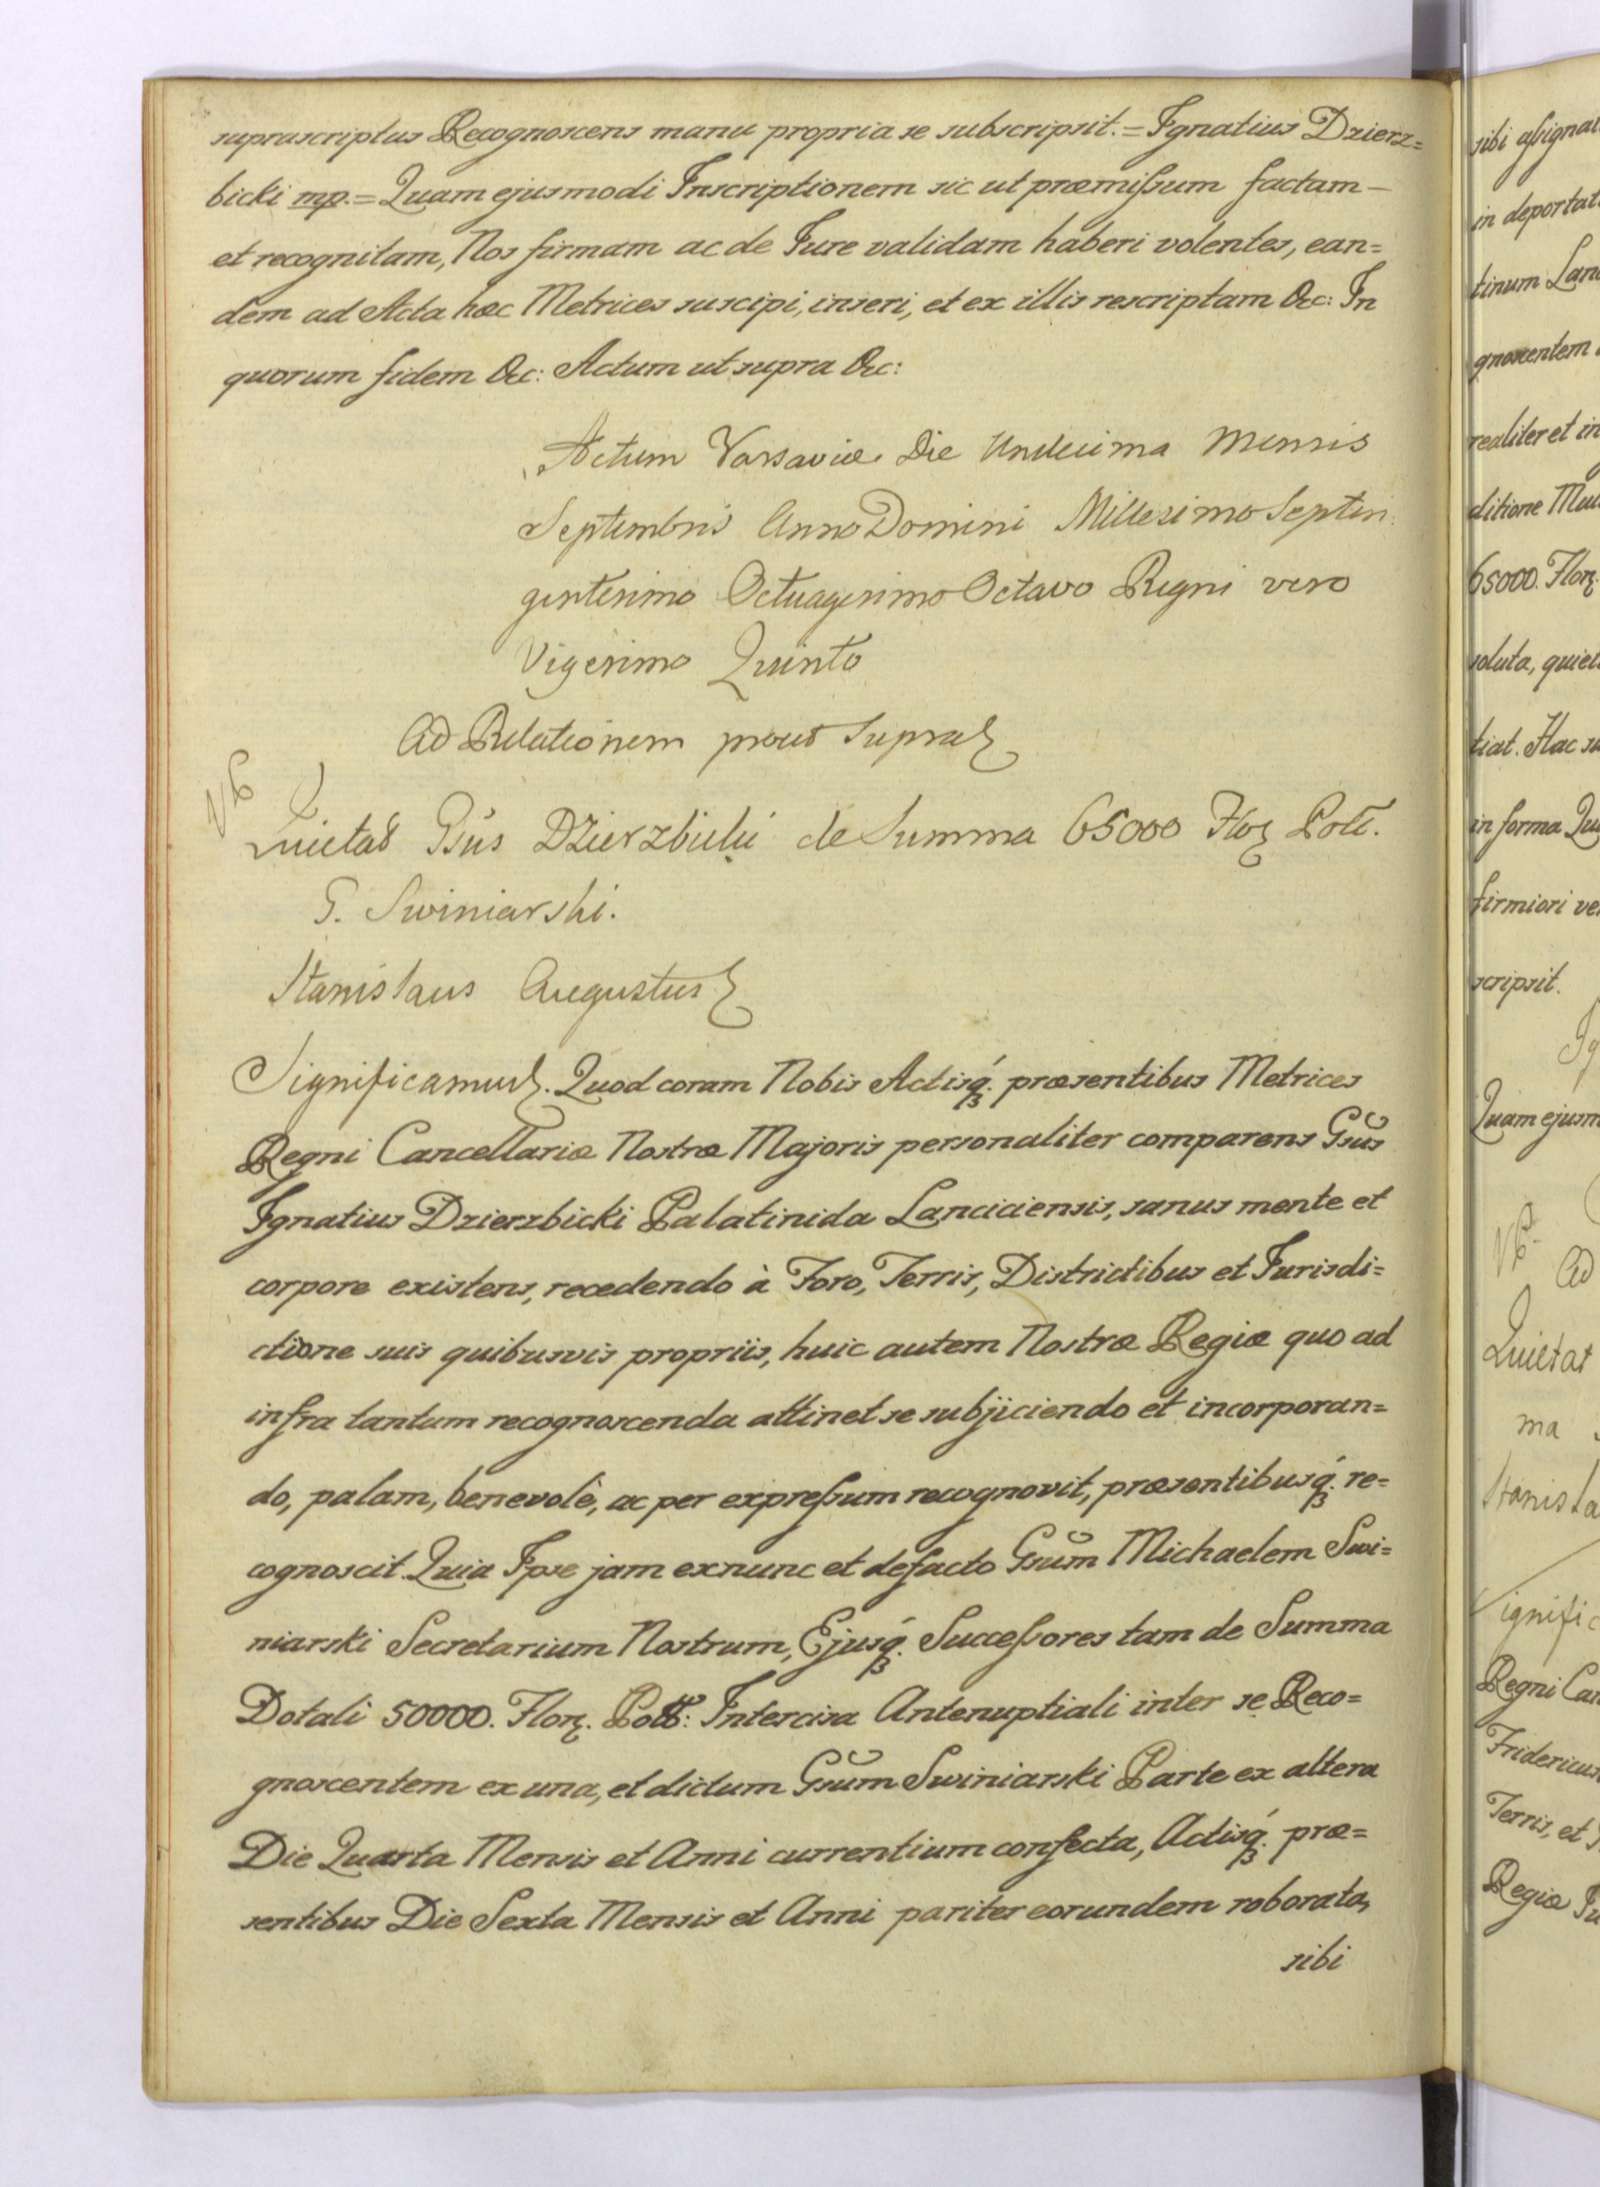 suprascriptus Recognoscens manu propria se subscripsit. = Ignatius Dzierz=
bicki mp. = Quam ejusmodi Inscriptionem sic ut præmißum factam —
et recognitam, Nos firmam ac de Jure validam haberi volentes, ean=
dem ad Acta hæc Metrices suscipi, inseri, et ex illis rescriptam &c: In
quorum fidem &c: Actum ut supra &c:
Actum Varsaviæ Die Undecima Mensis
Septembris Anno Domini Millesimo Septin
gentesimo Octuagesimo Octavo Regni vero
Vigesimo Quinto
Ad Relationem prout Supra
Quietat Gsus Dzierzbicki de Summa 65000 Flor Poll.
G. Swiniarski.
Stanislaus Augustus
Significamus. Quod coram Nobis Actisq. præsentibus Metrices
Regni Cancellariæ Nostræ Majoris personaliter comparens Gsus
Ignatius Dzierzbicki Palatinida Lanciciensis, sanus mente et
corpore existens, recedendo à Foro, Terris, Districtibus et Jurisdi=
ctione suis quibusvis propriis, huic autem Nostræ Regiæ quo ad
infra tantum recognoscenda attinet se subjiciendo et incorporan=
do, palam, benevolè, ac per expreßum recognovit, præsentibusq. re=
cognoscit. Quia Ipse jam exnunc et defacto Gsum Michaelem Swi=
niarski Secretarium Nostrum, Ejusq. Succeßores tam de Summa
Dotali 50000. Flor. Poll: Intercisa Antenuptiali inter se Reco=
gnoscentem ex una, et dictum Gsum Swiniarski Parte ex altera
Die Quarta Mensis et Anni currentium confecta, Actisq. præ=
sentibus Die Sexta Mensis et Anni pariter eorundem roborata,
sibi
sibi aßignat
in deportat
tinum Lan
gnoscentem
realiter et in
ditione
65000. Flor.
soluta, quiet
tiat. Hac su
in forma Qu
firmiori ve
scripsit.
Ig
Quam ejusm
Ad
Quietat
ma
Stanisla
Signific
Regni Can
Fridericus
Terris, et
Regiæ Ju